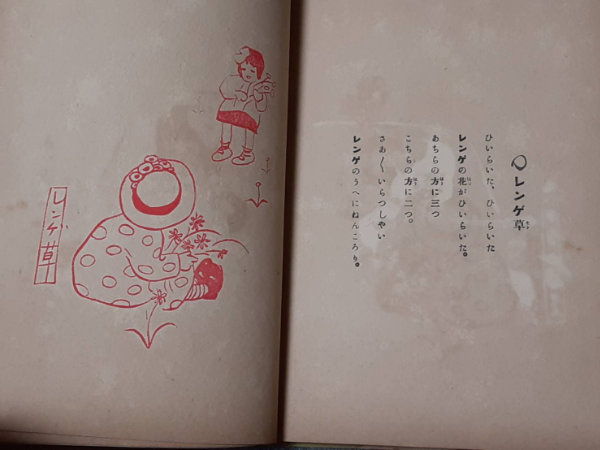 レンゲ草
ひいらいた、ひいらいた
レンゲの花がひいらいた。
あちらの方に三つ
こちらの方に二つ。
さあ〳〵いらつしやい
レンゲのうへにねんころり。
レンゲ草